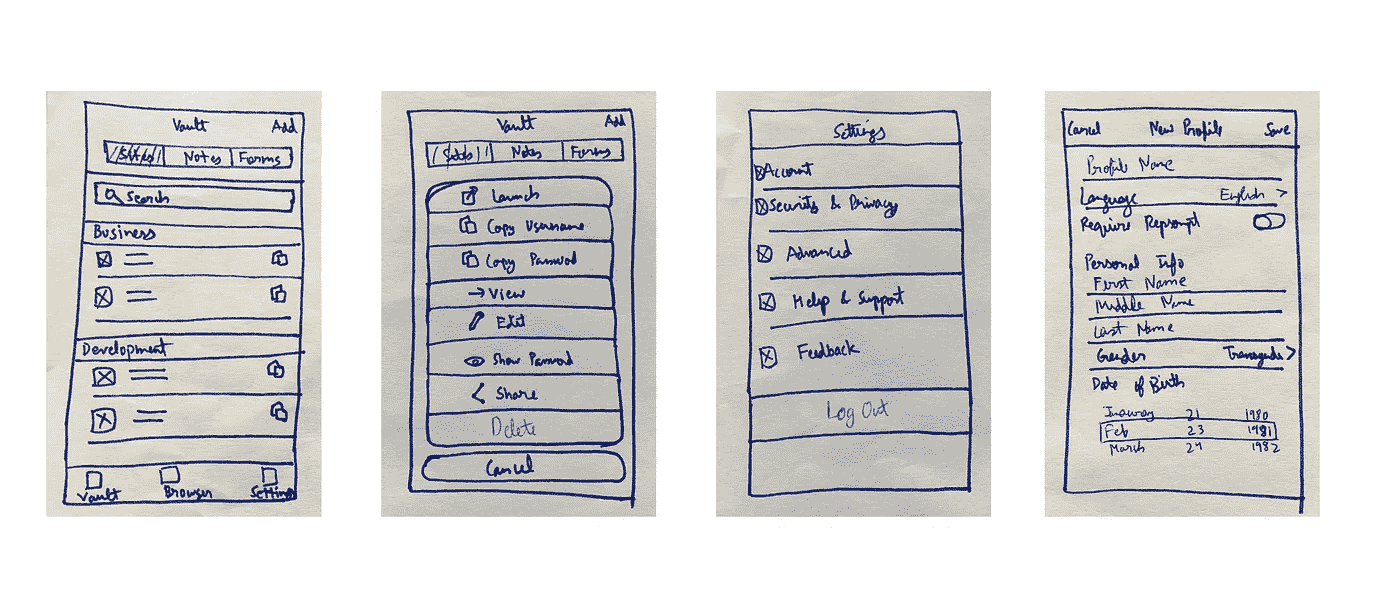 Vault Add
Sites Notes Forms
Search
Business
Development
Vault Browser Settings
Vault Add
Sites Notes Forms
Launch
Copy Username
Copy Password
View
Edit
Show Password
Share
Delete
Cancel
Settings
Account
Security & Privacy
Advanced
Help & Support
Feedback
Log Out
Cancel New Profile Save
Profile Name
Language English >
Require Reprompt
Personal Info
First Name
Middle Name
Last Name
Gender >
Date of Birth
21 1980
Feb 23 1981
March 24 1982